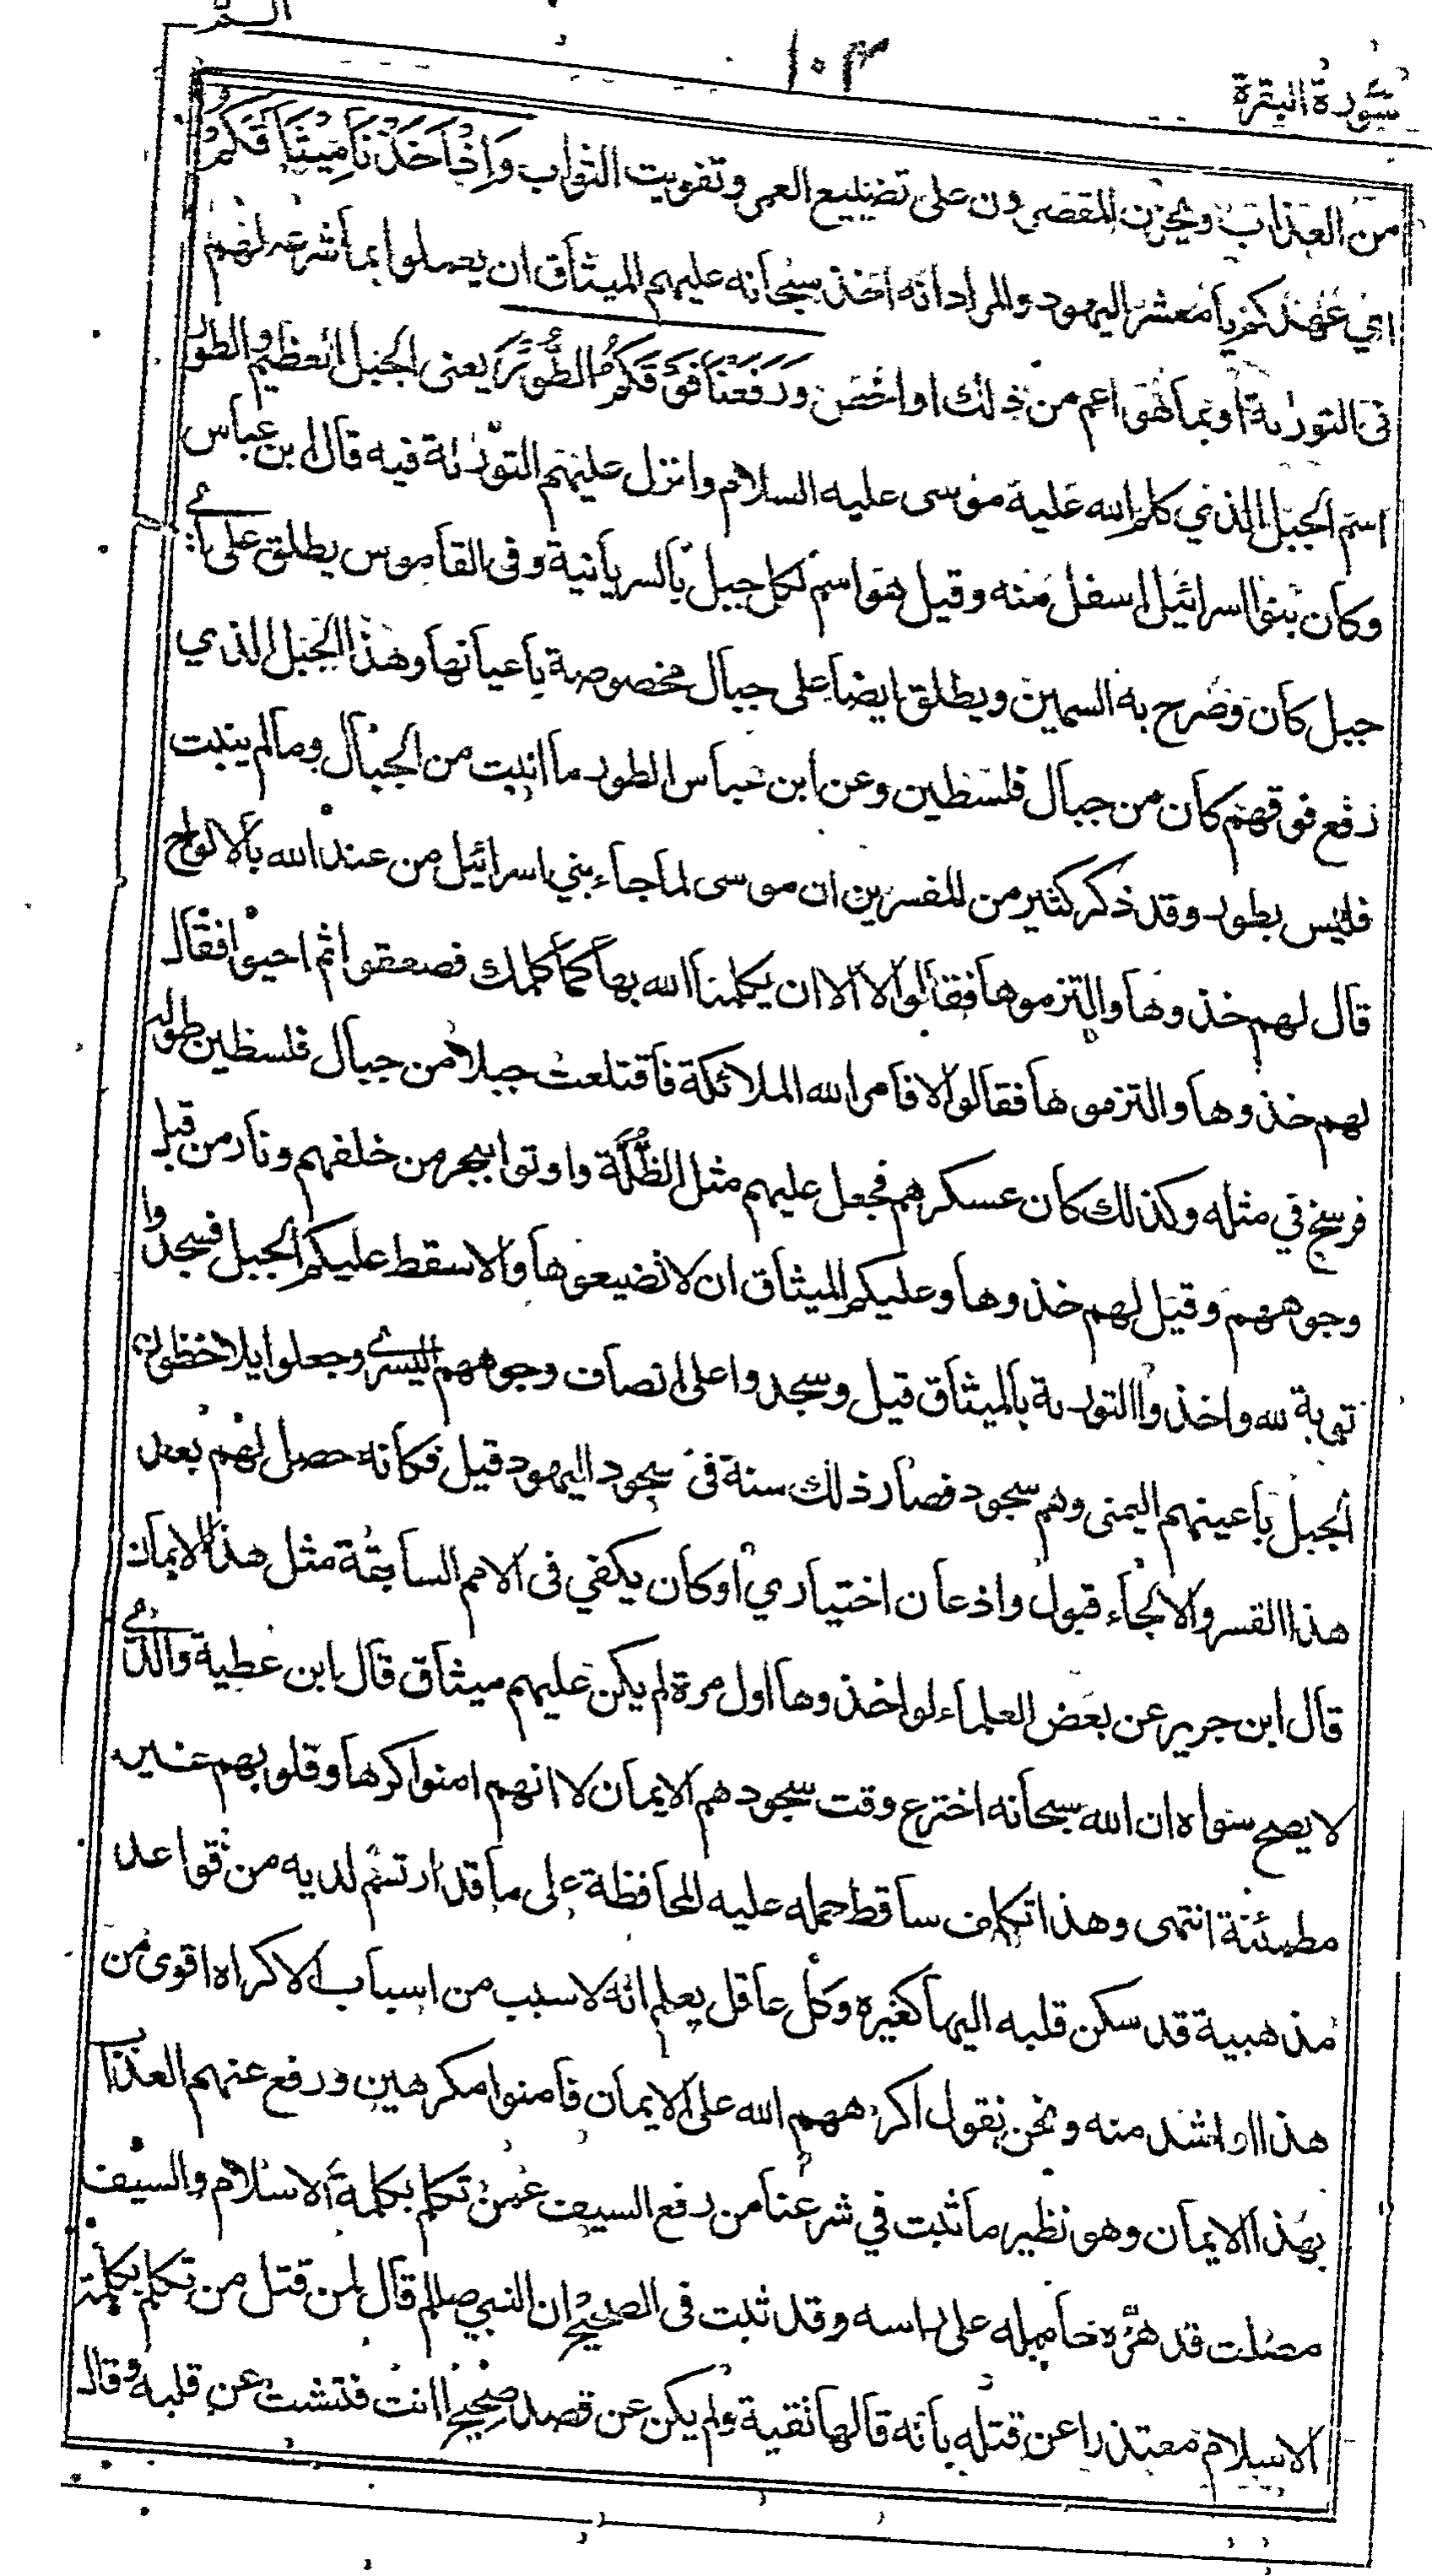 سورة البقرة
١٠٣
الـم
من العذاب ويحزن المقصرون على تضييع العمر وتفويت الثواب وَإِذْ أَخَذْنَا مِيثَاقَكُمْ
اي عهدكم يا معشر اليهود والمراد انه اخذ سبحانه عليهم الميثاق ان يعملوا بما شرعه لهم
فى التورىة او بما هو اعم من ذلك او اخص وَرَفَعْنَا فَوْقَكُمُ الطُّورَ يعنى الجبل العظيم والطور
اسم الجبل الذي كلم الله عليه موسى عليه السلام وانزل عليهم التورىة فيه قال ابن عباس
وكان بنوا اسرائيل اسفل منه وقيل هو اسم لكل جبل بالسريانية وفى القاموس يطلق على اي
جبل كان وصرح به السمين ويطلق ايضا على جبال مخصوصة باعيانها وهذا الجبل الذي
رفع فوقهم كان من جبال فلسطين وعن ابن عباس الطور ما انبت من الجبال وما لم ينبت
فليس بطور وقد ذكر كثير من المفسرين ان موسى لما جاء بني اسرائيل من عند الله بالالواح
قال لهم خذوها والتزموها فقالوا لا الا ان يكلمنا الله بها كما كلمك فصعقوا ثم احيوا فقال
لهم خذوها والتزموها فقالوا لا فامر الله الملائكة فاقتلعت جبلا من جبال فلسطين طوله
فرسخ في مثله وكذلك كان عسكرهم فجعل عليهم مثل الظُّلَّة واوتوا ببحر من خلفهم ونار من قبل
وجوههم وقيل لهم خذوها وعليكم الميثاق ان لا تضيعوها والا سقط عليكم الجبل فسجدوا
توبة لله واخذوا التورىة بالميثاق قيل وسجدوا على انصاف وجوههم اليسرى وجعلوا يلاحظون
الجبل باعينهم اليمنى وهم سجود فصار ذلك سنة فى سجود اليهود قيل فكانه حصل لهم بعد
هذا القسر والالجاء قبول واذعان اختياري او كان يكفي فى الامم السابقة مثل هذا الايمان
قال ابن جرير عن بعض العلماء لو اخذوها اول مرة لم يكن عليهم ميثاق قال ابن عطية والذي
لا يصح سواه ان الله سبحانه اخترع وقت سجودهم الايمان لا انهم امنوا كرها وقلوبهم غير
مطمئنة انتهى وهذا تكلف ساقط حمله عليه المحافظة على ما قد ارتسم لديه من قواعد
مذهبية قد سكن قلبه اليها كغيره وكل عاقل يعلم انه لا سبب من اسباب الاكراه اقوى من
هذا او اشد منه ونحن نقول اكرههم الله على الايمان فامنوا مكرهين ورفع عنهم العذاب
بهذا الايمان وهو نظير ما ثبت في شرعنا من رفع السيف عمن تكلم بكلمة الاسلام والسيف
مصلت قد هزّه حامله على راسه وقد ثبت فى الصحيح ان النبي صلم قال لمن قتل من تكلم بكلمة
الاسلام معتذرا عن قتله بانه قالها تقية ولم يكن عن قصد صحيح اانت فتشت عن قلبه وقال